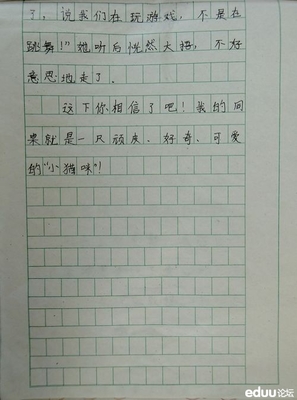 了，说我们在玩游戏，不是在
跳舞！”她听后恍然大悟，不好
意思地走了。
这下你相信了吧！我的同
桌就是一只顽皮、好奇、可爱
的“小猫咪”！
eduu论坛